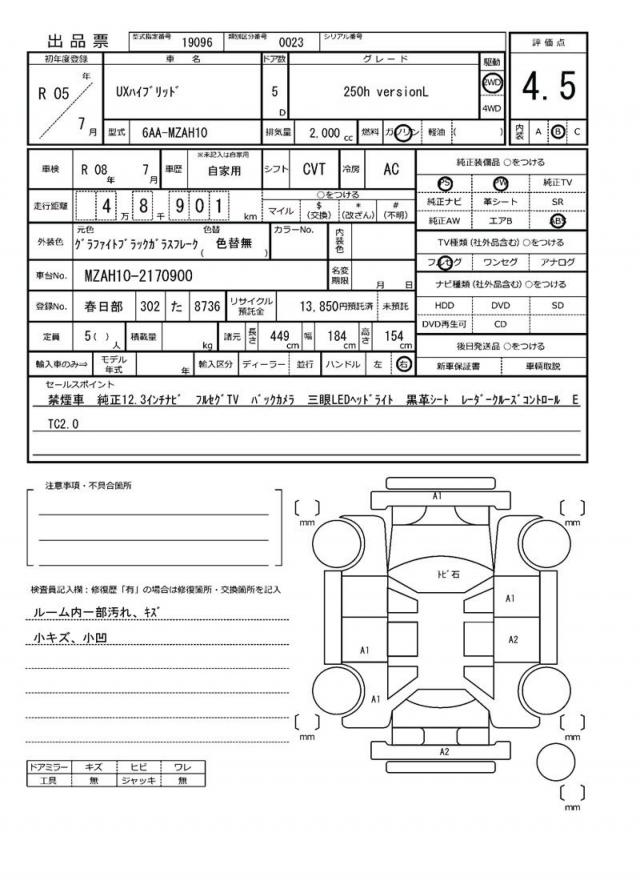 出品票 型式指定番号 19096 類別区分番号 0023 シリアル番号
初年度登録 車名 ドア数 グレード 駆動 評価点
R 05 年 7 月 UXハイブリッド 5 D 250h versionL 2WD 4WD 4.5
型式 6AA-MZAH10 排気量 2,000 cc 燃料 ガソリン 軽油 ( ) 内装 A B C
車検 R 08 年 7 月 車歴 ※未記入は自家用 自家用 シフト CVT 冷房 AC 純正装備品 ○をつける
PS PW 純正TV
走行距離 4 万 8 千 9 0 1 km ○をつける マイル $ (交換) * (改ざん) # (不明) 純正ナビ 革シート SR
純正AW エアB ABS
外装色 元色 グラファイトブラックガラスフレーク 色替 ( 色替無 ) カラーNo. 内装色 TV種類 (社外品含む) ○をつける
フルセグ ワンセグ アナログ
車台No. MZAH10-2170900 名変期限 月 日 ナビ種類 (社外品含む) ○をつける
登録No. 春日部 302 た 8736 リサイクル預託金 13,850円預託済 未預託 HDD DVD SD
DVD再生可 CD
定員 5( ) 人 積載量 kg 諸元 長さ 449 cm 幅 184 cm 高さ 154 cm 後日発送品 ○をつける
輸入車のみ⇒ モデル年式 年 輸入区分 ディーラー 並行 ハンドル 左 右 新車保証書 車輌取説
セールスポイント
禁煙車 純正12.3インチナビ フルセグTV バックカメラ 三眼LEDヘッドライト 黒革シート レーダークルーズコントロール E
TC2.0
注意事項・不具合箇所
検査員記入欄：修復歴「有」の場合は修復箇所・交換箇所を記入
ルーム内一部汚れ、キズ
小キズ、小凹
ドアミラー キズ ヒビ ワレ
工具 無 ジャッキ 無
A1
mm
mm
トビ石
A1
A1
A2
A1
mm
mm
A2
mm